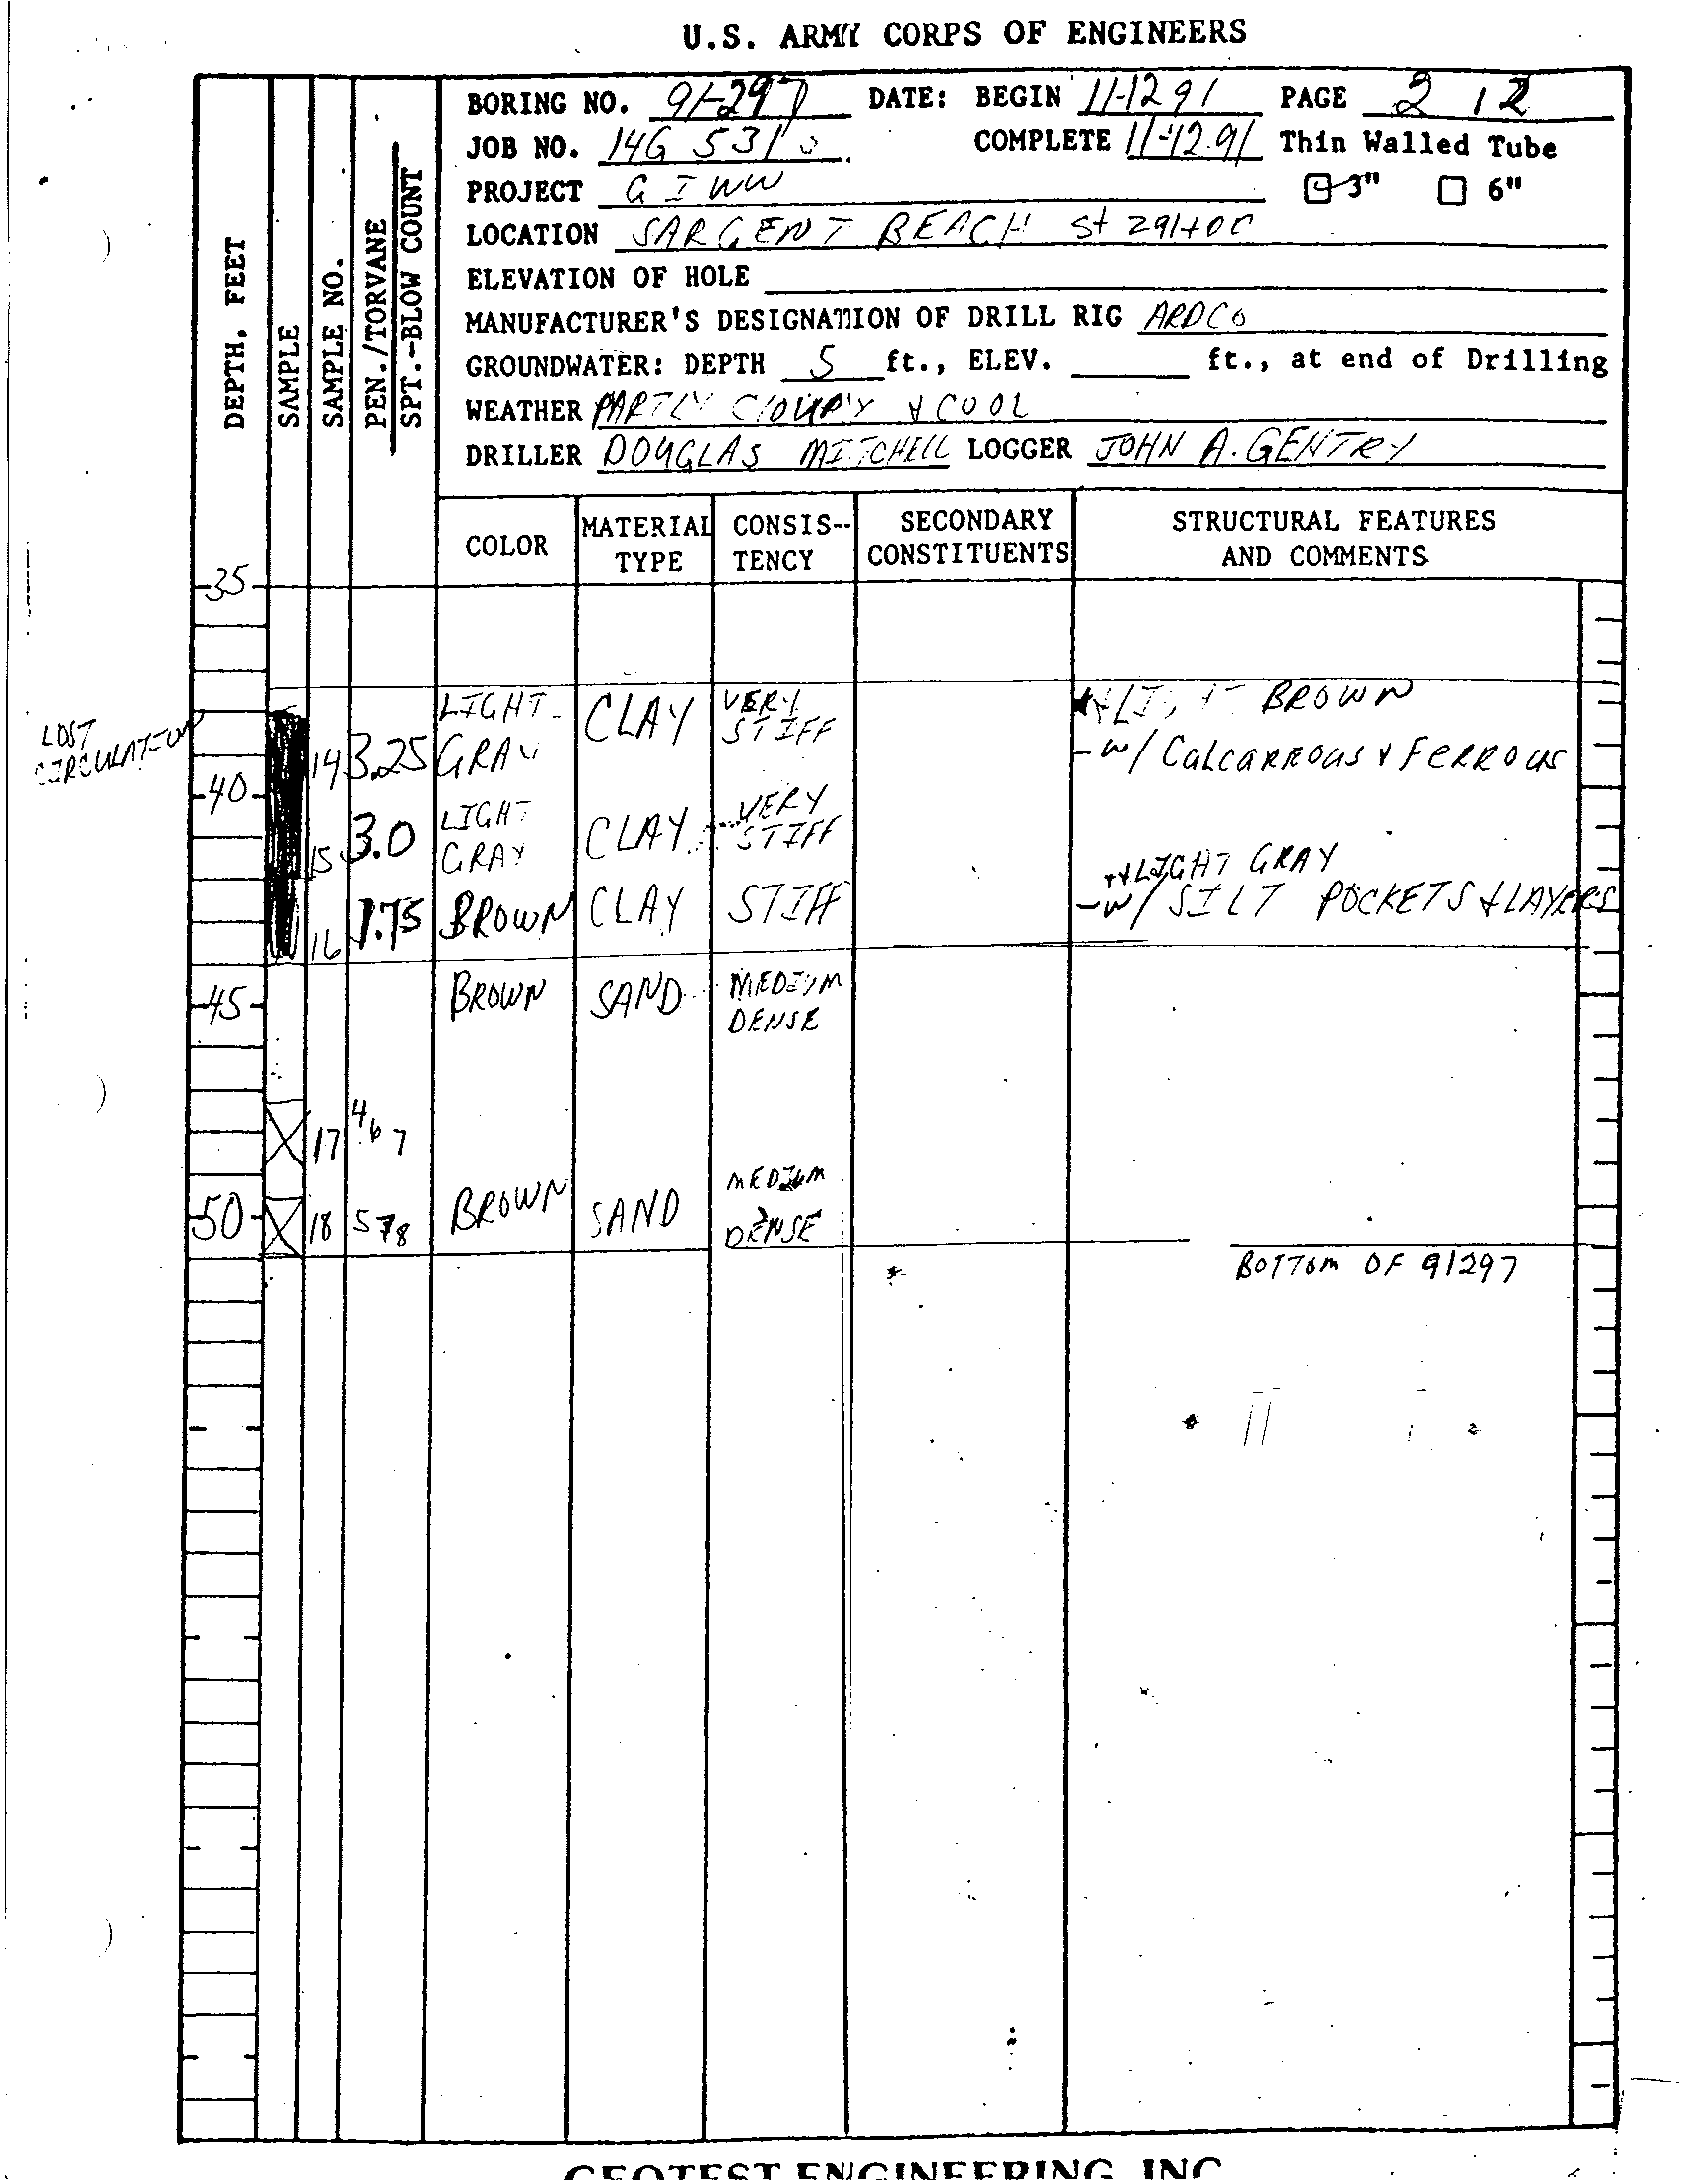 U.S. ARMY CORPS OF ENGINEERS
BORING NO. 91-297 DATE: BEGIN 11-12 91 PAGE 2 / 2
JOB NO. 14G 531 COMPLETE 11-12.91 Thin Walled Tube
PROJECT G I WW 3" 6"
LOCATION SARGENT BEACH St 291+00
ELEVATION OF HOLE
MANUFACTURER'S DESIGNATION OF DRILL RIG ARDCO
GROUNDWATER: DEPTH 5 ft., ELEV. ft., at end of Drilling
WEATHER PARTLY CLOUDY & COOL
DRILLER DOUGLAS MITCHELL LOGGER JOHN A. GENTRY
DEPTH, FEET
SAMPLE
SAMPLE NO.
PEN./TORVANE
SPT.-BLOW COUNT
COLOR MATERIAL TYPE CONSIS-TENCY SECONDARY CONSTITUENTS STRUCTURAL FEATURES AND COMMENTS
35
LOST CIRCULATION
14 3.25 LIGHT GRAY CLAY VERY STIFF BROWN
-w/ CALCARREOUS & FERROUS
40
15 3.0 LIGHT GRAY CLAY VERY STIFF
LIGHT GRAY
16 1.75 BROWN CLAY STIFF -w/ SILT POCKETS & LAYERS
45 BROWN SAND MEDIUM DENSE
17 4 6 7
50 18 5 7 8 BROWN SAND MEDIUM DENSE
BOTTOM OF 91297
GEOTEST ENGINEERING, INC